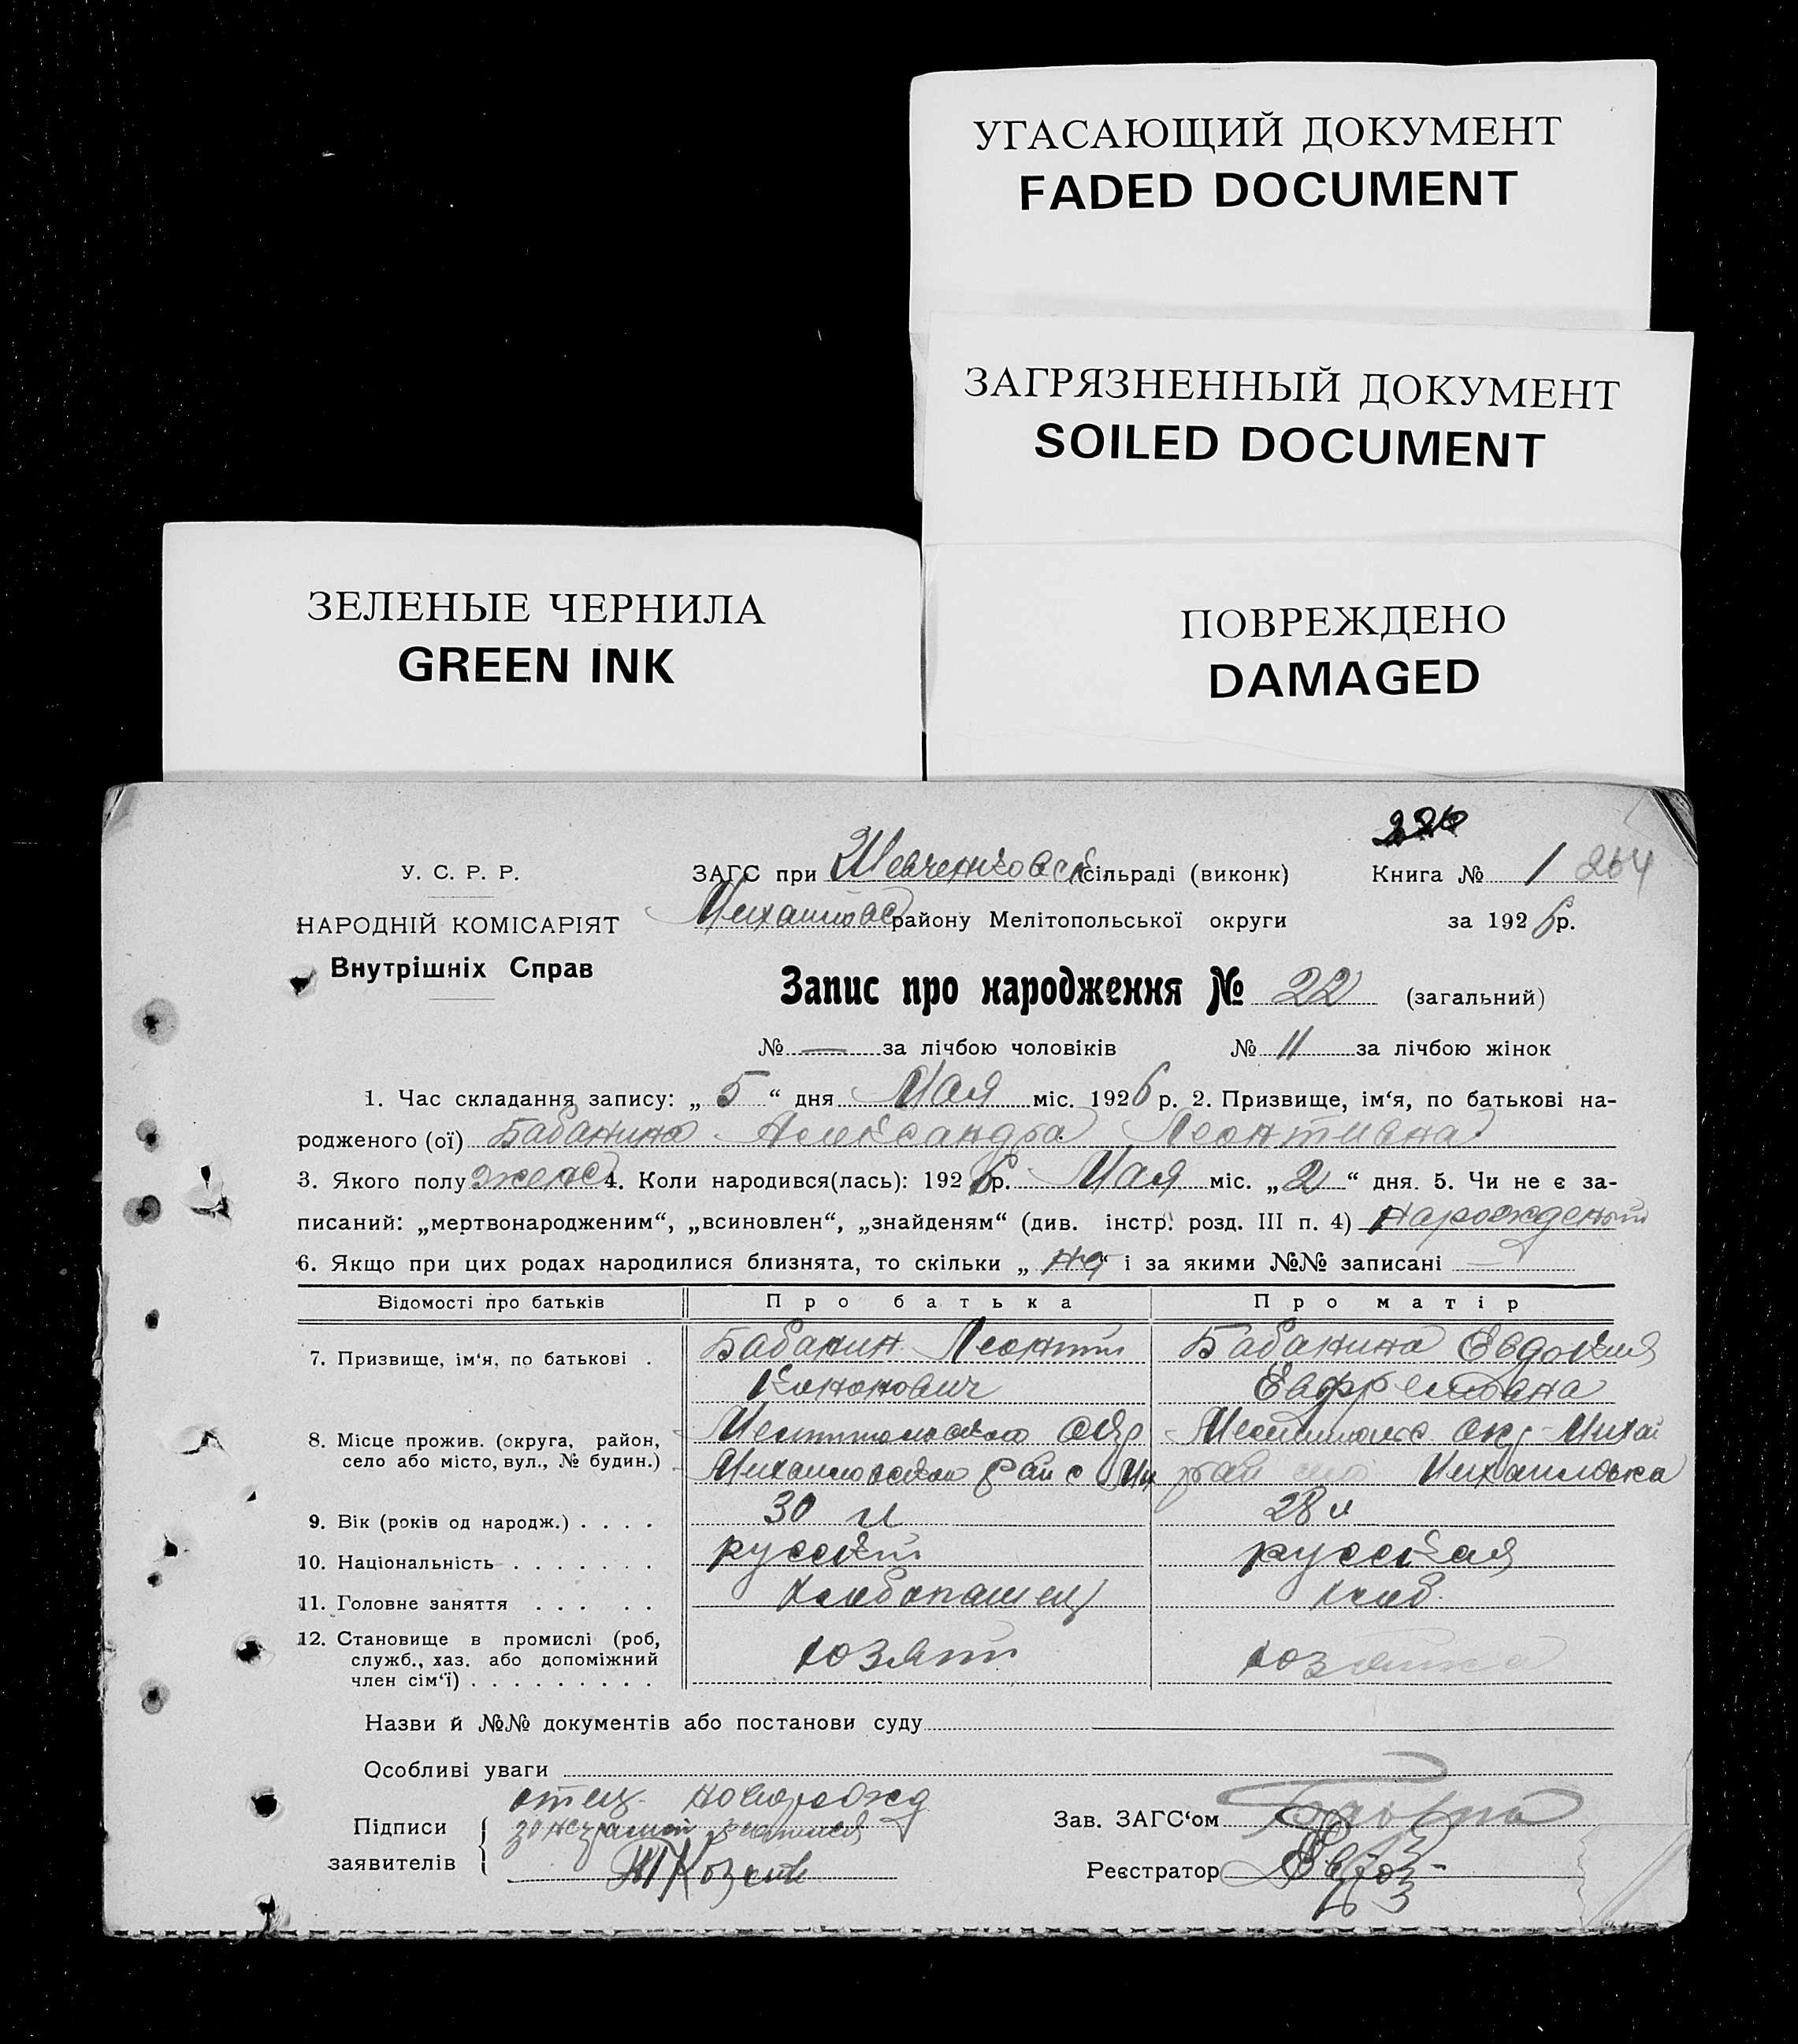 УГАСАЮЩИЙ ДОКУМЕНТ
FADED DOCUMENT
ЗАГРЯЗНЕННЫЙ ДОКУМЕНТ
SOILED DOCUMENT
ЗЕЛЕНЫЕ ЧЕРНИЛА
GREEN INK
ПОВРЕЖДЕНО
DAMAGED
У. С. Р. Р.
НАРОДНІЙ КОМІСАРІЯТ
Внутрішніх Справ
ЗАГС при Шевченковск сільраді (виконк)
Михайловс району Мелітопольської округи
Книга № 1 264
за 1926 р.
Запис про народження № 22 (загальний)
№ — за лічбою чоловіків № 11 за лічбою жінок
1. Час складання запису: „ 5 “ дня Мая міс. 1926 р. 2. Призвище, ім‘я, по батькові на-
родженого (ої) Бабанина Александра Леонтивна
3. Якого полу женс 4. Коли народився(лась): 1926 р. Мая міс. „ 2 “ дня. 5. Чи не є за-
писаний: „мертвонародженим“, „всиновлен“, „знайденям“ (див. інстр. розд. III п. 4)
6. Якщо при цих родах народилися близнята, то скільки „ “ і за якими №№ записані —
Відомості про батьків Про батька Про матір
7. Призвище, ім‘я, по батькові . Бабанин Леонтий Бабанина Евдокия
Кононович
8. Місце прожив. (округа, район,
село або місто, вул., № будин.) Михайловка
9. Вік (років од народж.) . . . . 30 28
10. Національність . . . . . . . русский русская
11. Головне заняття . . . . . хлебопашец хлеб.
12. Становище в промислі (роб,
служб., хаз. або допоміжний
член сім‘ї) . . . . . . . . . хозяин хозяйка
Назви й №№ документів або постанови суду
Особливі уваги
отец новорожд
Підписи
заявителів
Зав. ЗАГС‘ом
Реєстратор